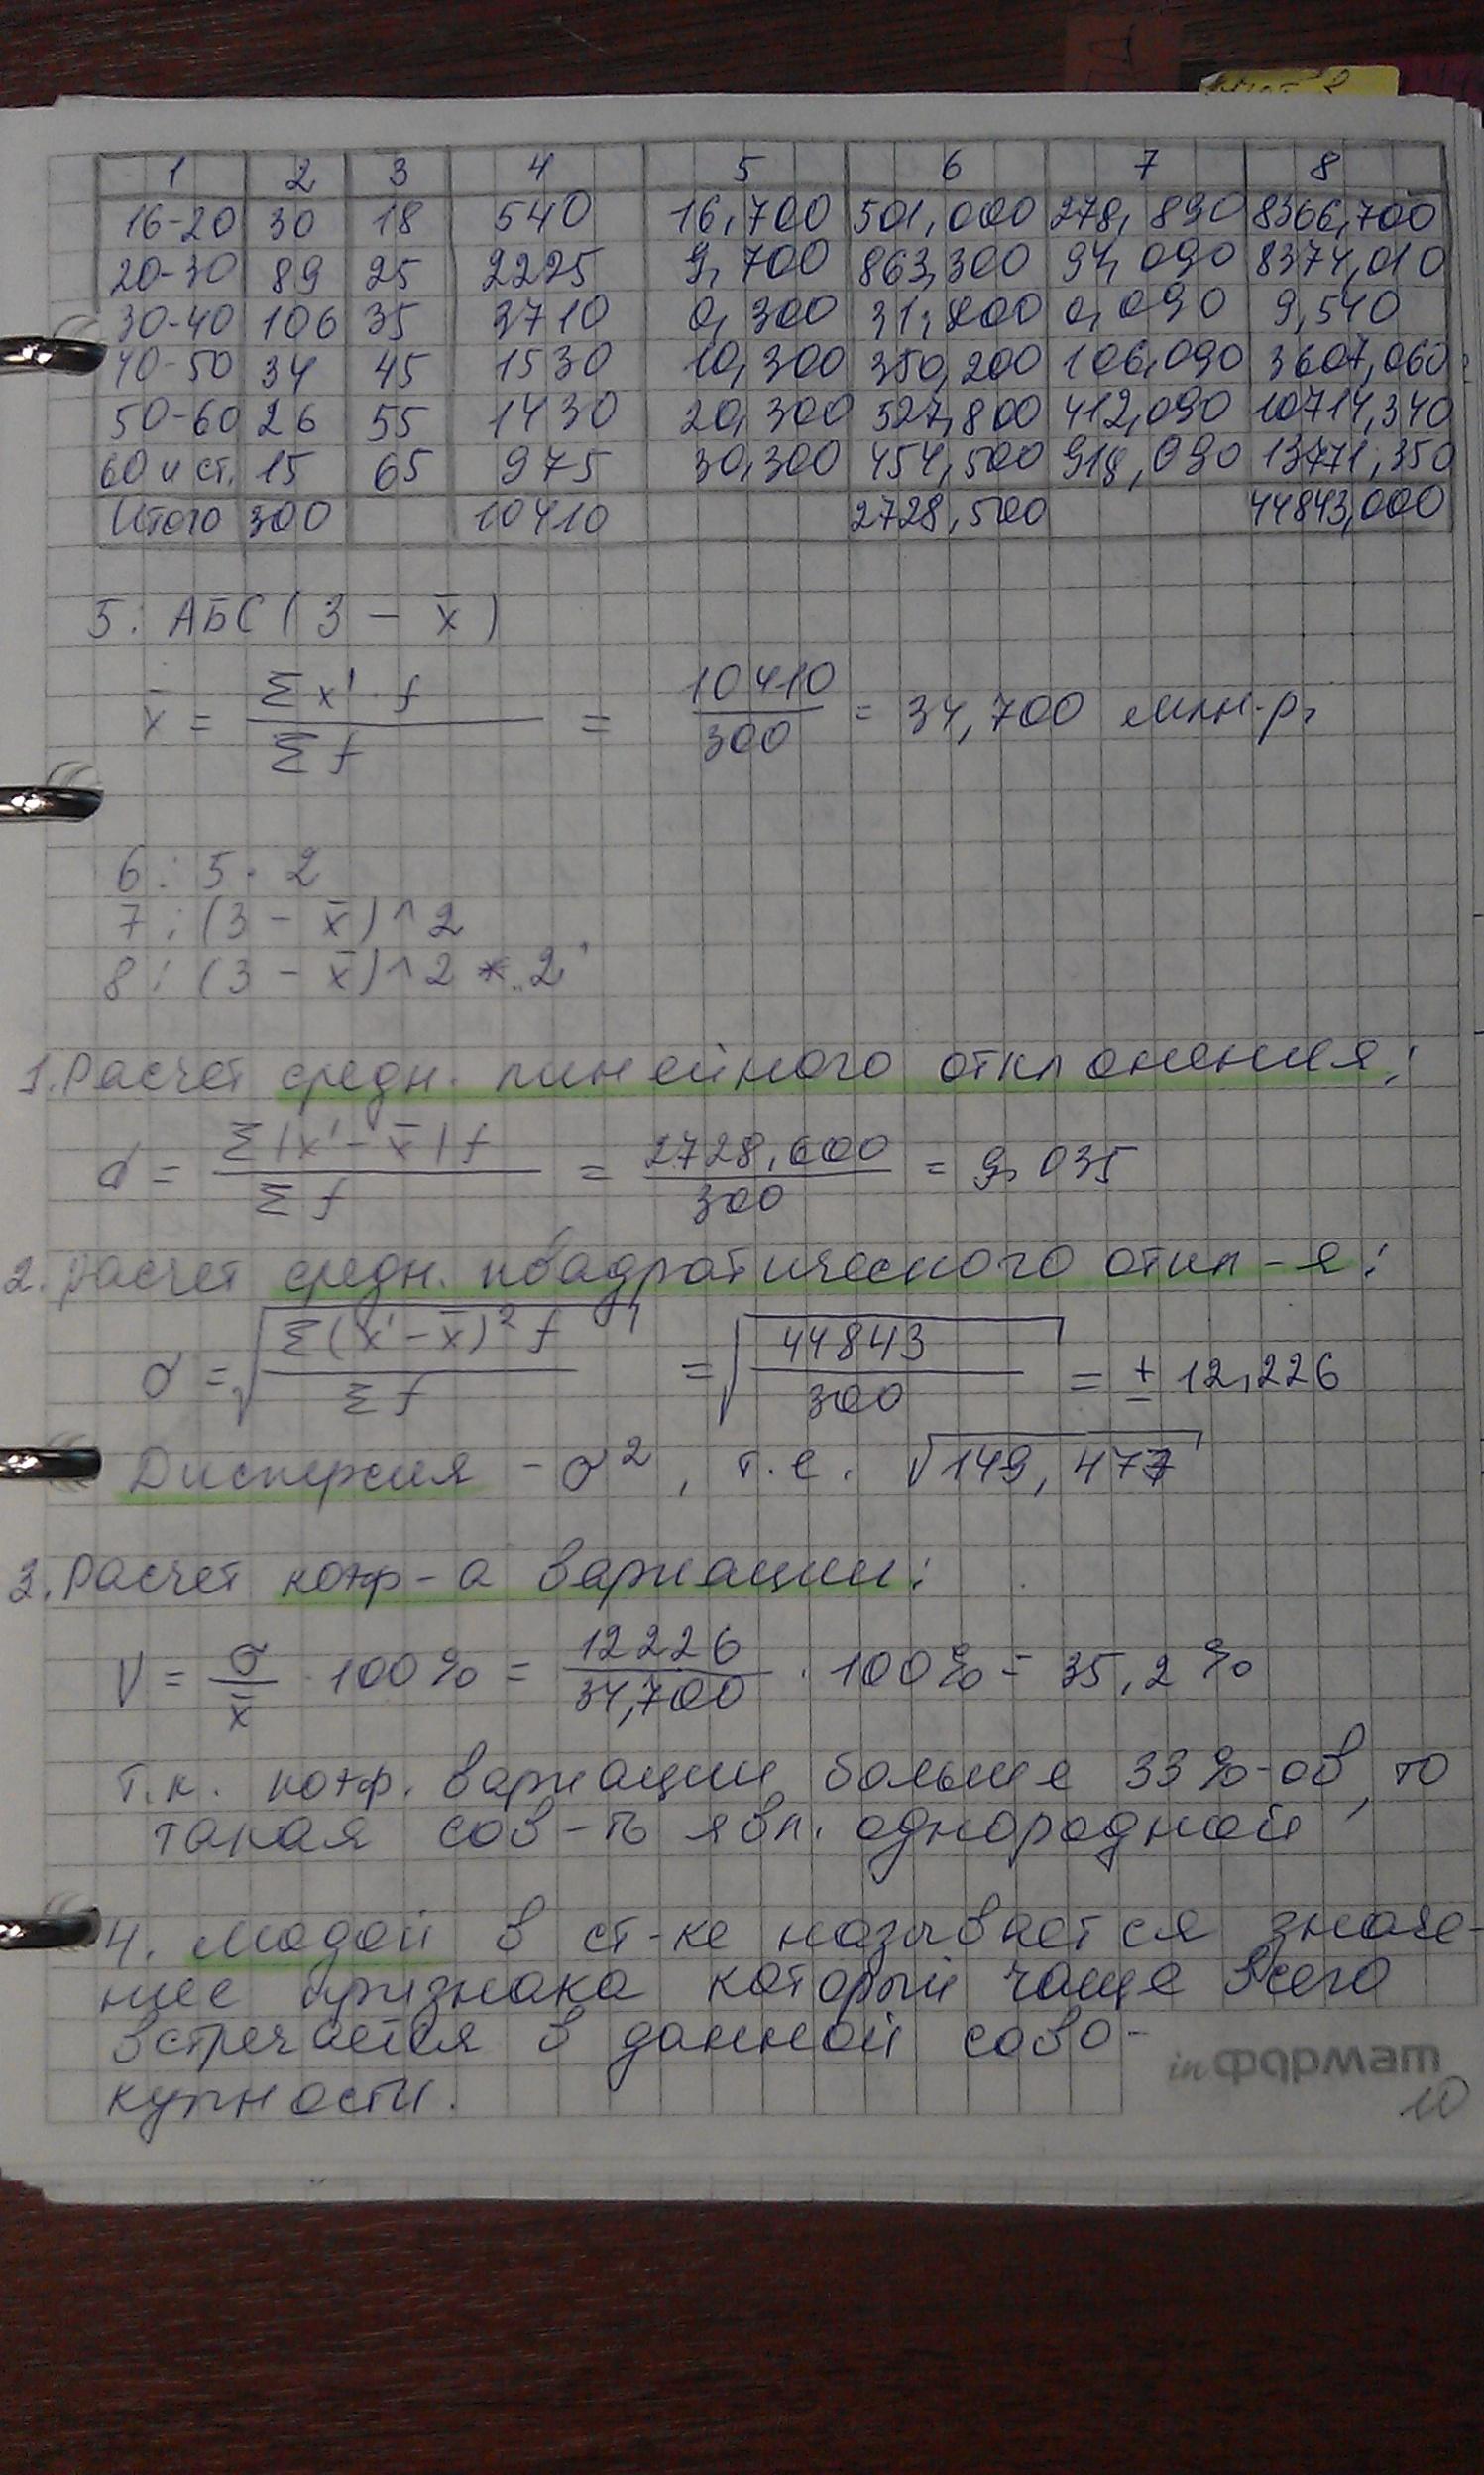 1 2 3 4 5 6 7 8
16-20 30 18 540 16,700 501,000 278,890 8366,700
20-30 89 25 2225 9,700 863,300 94,090 8374,010
30-40 106 35 3710 0,300 31,800 0,090 9,540
40-50 34 45 1530 10,300 350,200 106,090 3607,060
50-60 26 55 1430 20,300 527,800 412,090 10714,340
60 и ст. 15 65 975 30,300 454,500 918,090 13771,350
Итого 300 10410 2728,500 44843,000
5: АБС ( 3 - x̄ )
x̄ = Σx'·f / Σf = 10410 / 300 = 34,700 млн.р,
6: 5 · 2
7: (3 - x̄)^2
8: (3 - x̄)^2 * 2
1. Расчет средн. линейного отклонения:
d = Σ|x' - x̄|f / Σf = 2728,600 / 300 = 9,035
2. Расчет средн. квадратического откл-я:
σ = √(Σ(x' - x̄)² f / Σf) = √(44843 / 300) = ± 12,226
Дисперсия - σ², т.е. √149,477
3. Расчет коэф-а вариации:
V = σ / x̄ · 100% = 12226 / 34,700 · 100% = 35,2%
т.к. коэф. вариации больше 33%-ов, то
такая сов-ть явл. однородной
4. Модой в ст-ке называется значе-
ние признака который чаще всего
встречается в данной сово-
купности.
inФормат
10